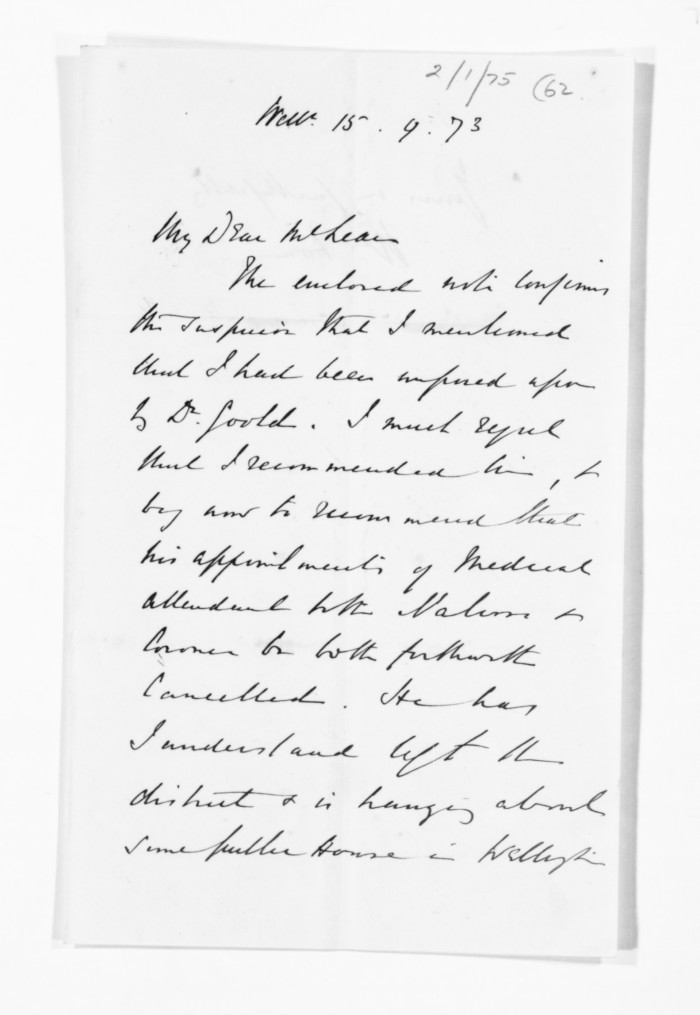 2/1/75 (62.
Welln. 15. 9. 73
My Dear McLean
The enclosed note confirms
the suspicion that I mentioned
that I had been imposed upon
by Dr. Goold. I much regret
that I recommended him, &
beg now to recommend that
his appointments of Medical
attendant to the Natives &
Coroner be both forthwith
Cancelled. He has
I understand left the
district & is hanging about
some public House in Wellington